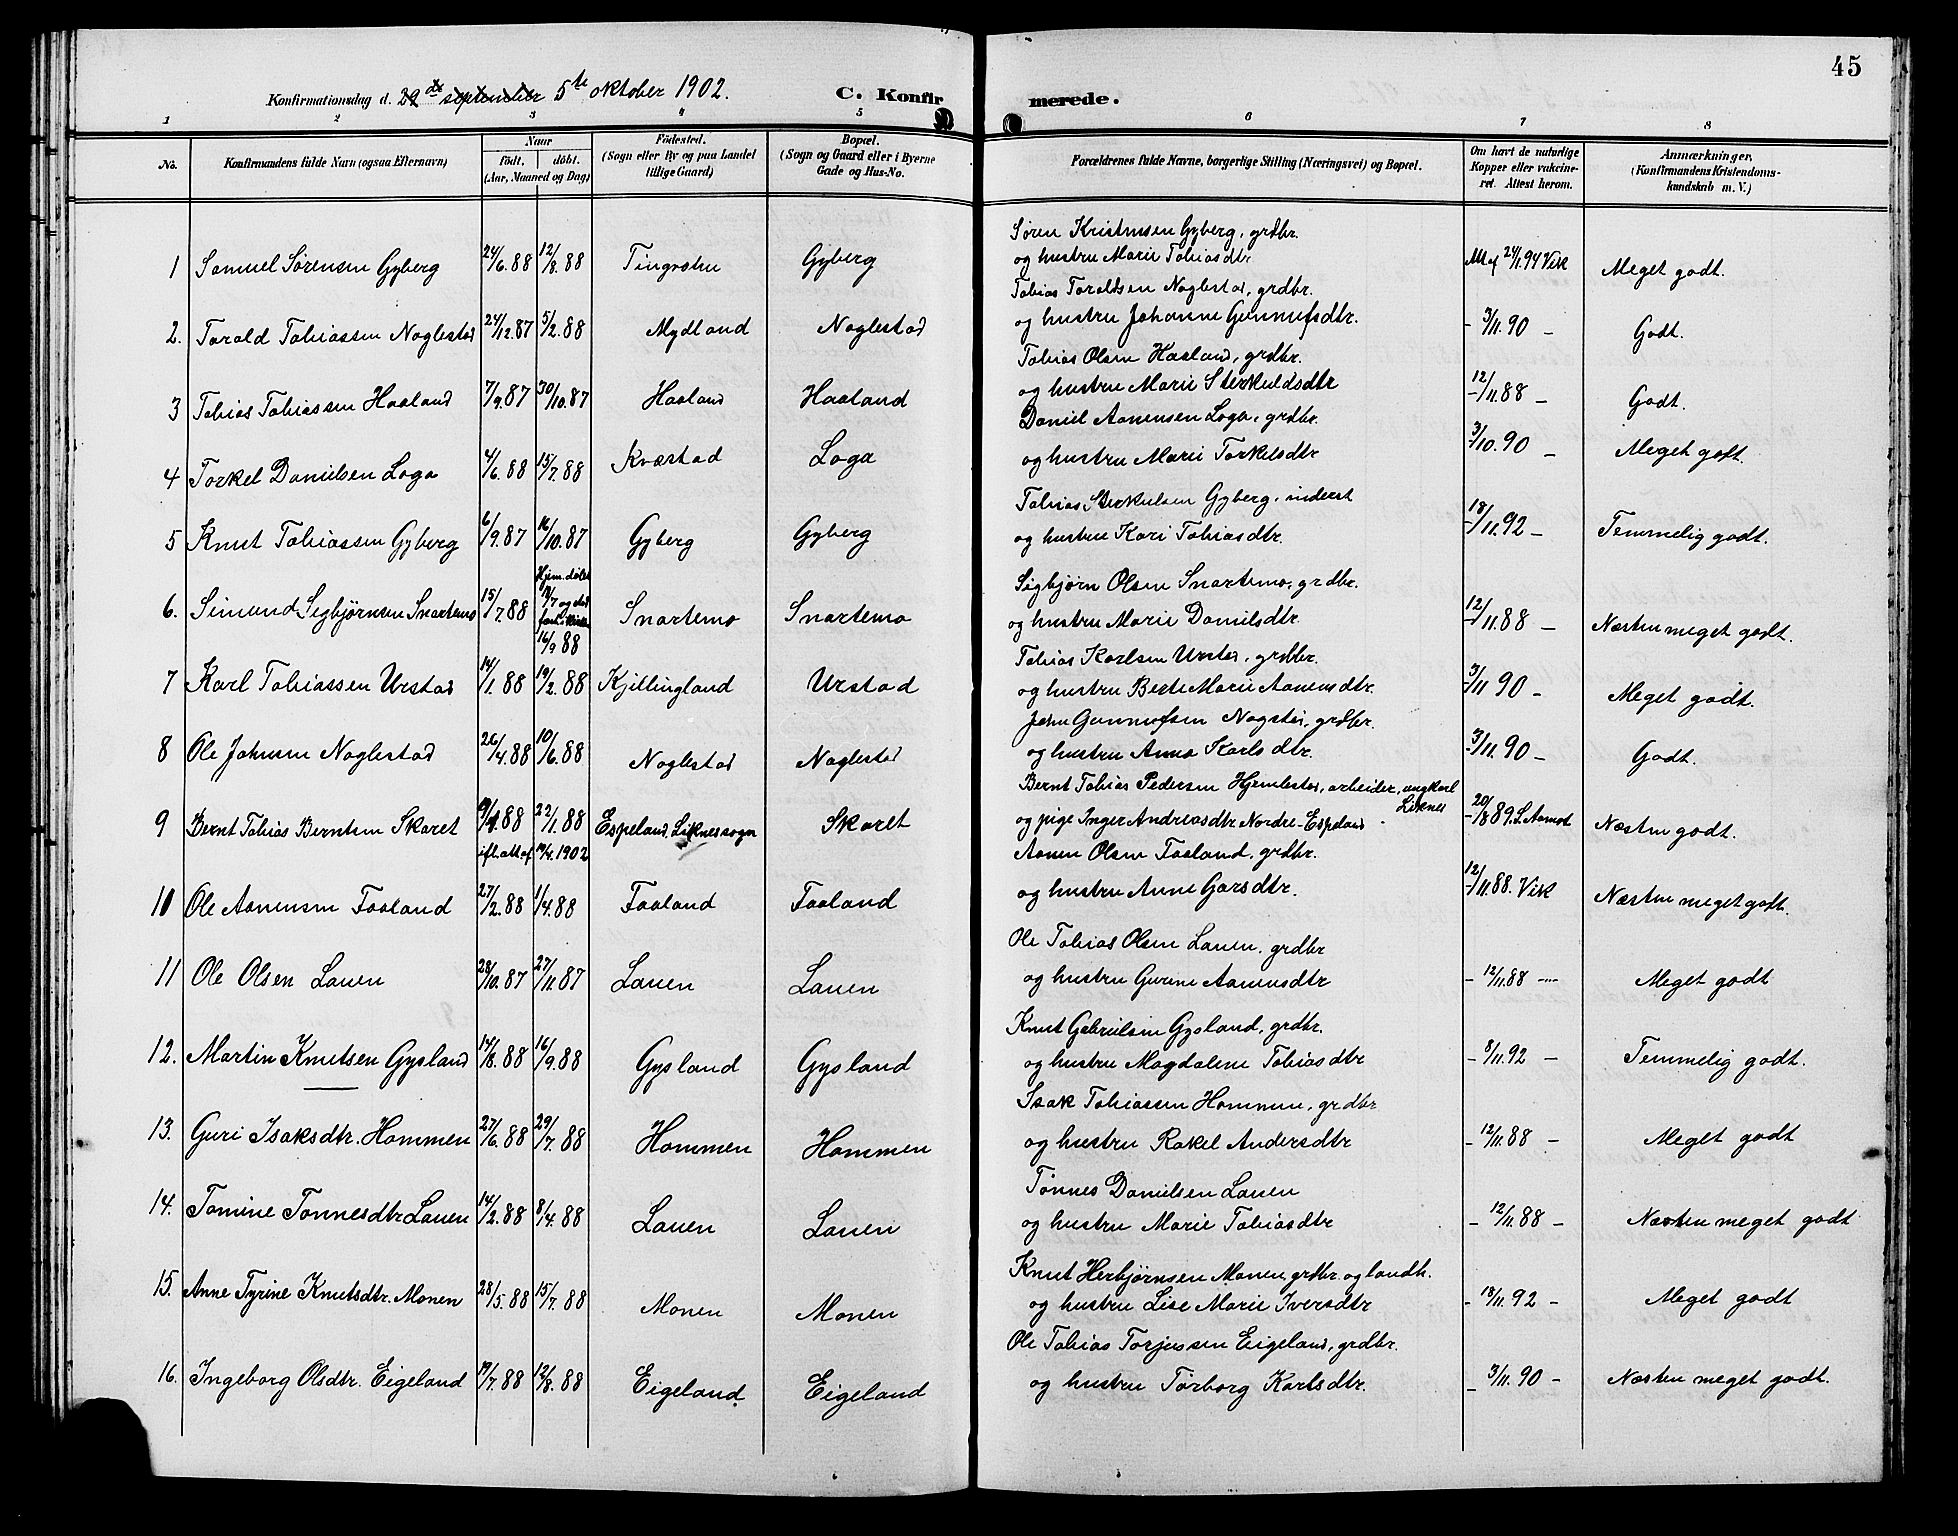 45
Konfirmationsdag d. 29de september 5te oktober 1902. C. Konfirmerede.
1 2 3 4 5 6 7 8
No. Konfirmandens fulde Navn (ogsaa Efternavn) Naar født. døbt. (Aar, Maaned og Dag) Fødested. (Sogn eller By og paa Landet tillige Gaard) Bopæl. (Sogn og Gaard eller i Byerne Gade og Hus-No. Forældrenes fulde Navne, borgerlige Stilling (Næringsvei) og Bopæl. Om havt de naturlige Kopper eller vakcineret. Attest herom. Anmærkninger. (Konfirmandens Kristendomskundskab m. V.)
Søren Kristensen Gyberg, grdbr.
1 Samuel Sørensen Gyberg 24/6.88 12/8.88 Tingvatn Gyberg og hustru Marie Tobiasdtr Att af 24/1.94 Vik Meget godt.
Tobias Taraldsen Noglestad, grdbr.
2. Tarald Tobiassen Naglestad 24/12.87 5/2.88 Mydland Naglestad og hustru Johanne Gunnufsdtr. - 3/11.90 - Godt.
Tobias Olsen Haaland, grdbr.
3 Tobias Tobiassen Haaland 7/9.87 30/10.87 Haaland Haaland og hustru Marie Sterkuldsdtr - 12/11.88 - Godt.
Daniel Aanensen Loga, grdbr.
4 Torkel Danielsen Loga 4/6.88 15/7.88 Kvæstad Loga og hustru Marie Torkelsdtr - 3/10.90 - Meget godt.
Tobias Sterkulsen Gyberg, inderst
5 Knut Tobiassen Gyberg 6/9.87 16/10.87 Gyberg Gyberg og hustru Kari Tobiasdtr. - 18/11.92 - Temmelig godt.
Hjem.døbt
Sigbjørn Olsen Snartemo, grdbr.
6. Simund Sigbjørnsen Snartemo 15/7.88 16/9 88 Snartemo Snartemo og hustru Marie Danielsdtr. - 12/11.88 - Næsten meget godt.
Tobias Karlsen Urstad, grdbr.
7 Karl Tobiassen Urstad 14/1.88 19/2.88 Kjillingland Urstad og hustru Berte Marie Aanensdtr. - 3/11 90 - Meget godt.
John Gunnufsen Nagstad, grdbr.
8 Ole Johnsen Naglestad 26/4.88 10/6.88 Naglestad Naglestad og hustru Anna Karlsdtr. - 3/11.90 - Godt.
Bernt Tobias Pedersen Hjemlestad, arbeider, ungkarl Liknes
9 Bernt Tobias Berntsen Skaret 88 22/1.88 Espeland, Liknes sogn Skaret og pige Inger Andreasdtr Nordre-Espeland - 20/8 89. S. Aamot Næsten godt.
ifl. att. af 19/4.1902
Aanen Olsen Faaland, grdbr.
10 Ole Aanensen Faaland 27/2.88 1/4.88 Faaland Faaland og hustru Anne Garsdtr. - 12/11.88. Vik Næsten meget godt.
Ole Tobias Olsen Lauen, grdbr
11 Ole Olsen Lauen 28/10.87 27/11.87 Lauen Lauen og hustru Gurine Aanensdtr - 12/11.88 - Meget godt
Knut Gabrielsen Gysland, grdbr.
12. Martin Knutsen Gysland 14/8.88 16/9.88 Gysland Gysland og hustru Magdalene Tobiasdtr - 8/11.92 - Temmelig godt.
Isak Tobiassen Hommen, grdbr
13. Guri Isaksdtr. Hommen 27/6.88 29/7.88 Hommen Hommen og hustru Rakel Andersdtr - 12/11.88 - Meget godt
Tønnes Danielsen Lauen
14. Tomine Tønnesdtr Lauen 14/2.88 8/4.88 Lauen Lauen og hustru Marie Tobiasdtr - 12/11.88 - Næsten meget godt
Knut Herbjørnsen Monen, grdbr. og landh.
15. Anne Tyrine Knutsdtr. Monen 28/5.88 15/7.88 Monen Monen og hustru Lise Marie Iversdtr - 18/11.92 - Meget godt
Ole Tobias Torjussen Eigeland, grdbr.
16. Ingeborg Olsdtr. Eigeland 19/7.88 12/8.88 Eigeland Eigeland og hustru Torborg Karlsdtr. - 3/11.90 - Næsten meget godt.